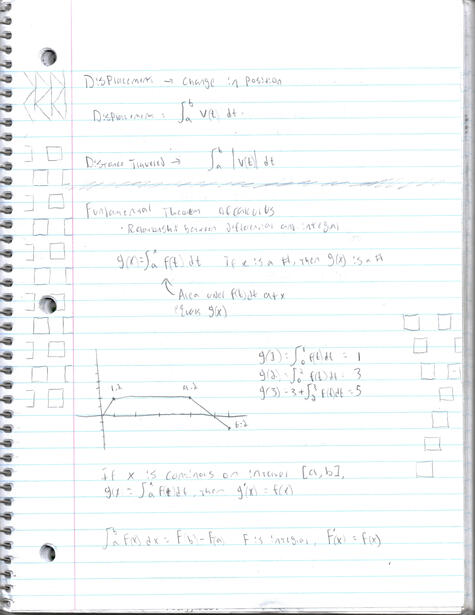 Displacement → Change in Position
Displacement = ∫ₐᵇ V(t) dt
Distance Traveled → ∫ₐᵇ |V(t)| dt
Fundamental Theorem of Calculus
· Relationship between differential and integral
g(x) = ∫ₐˣ f(t) dt if x is a #, then g(x) is a #
Area under f(t) dt a→x
g(x)
g(1) = ∫₀¹ f(t) dt = 1
g(2) = ∫₀² f(t) dt = 3
g(3) = 3 + ∫₂³ f(t) dt = 5
1,2
6,-2
If x is continous on interval [a, b],
g(x) = ∫ₐˣ f(t) dt, then g'(x) = f(x)
∫ₐᵇ f(x) dx = F(b) - F(a) F is integral, F'(x) = f(x)